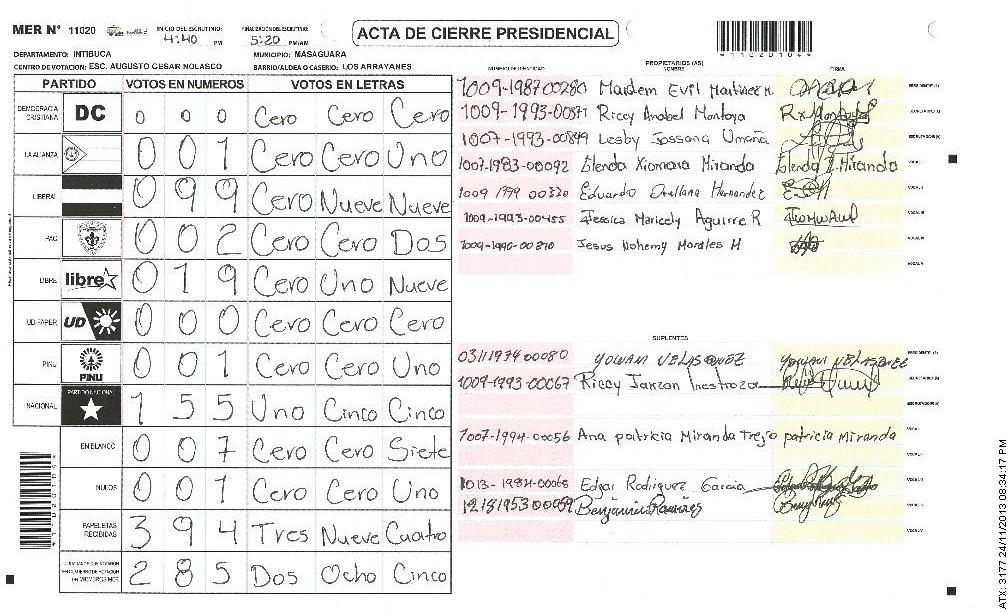 MER N° 11020 INICIO DEL ESCRUTINIO: 4:40 PM FINALIZACIÓN DEL ESCRUTINIO: 5:20 PM/AM
ACTA DE CIERRE PRESIDENCIAL
*11020104*
DEPARTAMENTO: INTIBUCA MUNICIPIO: MASAGUARA
CENTRO DE VOTACION: ESC. AUGUSTO CESAR NOLASCO BARRIO/ALDEA O CASERIO: LOS ARRAYANES
PARTIDO VOTOS EN NUMEROS VOTOS EN LETRAS
DEMOCRACIA CRISTIANA DC 0 0 0 Cero Cero Cero
LA ALIANZA 0 0 1 Cero Cero Uno
LIBERAL 0 9 9 Cero Nueve Nueve
PAC 0 0 2 Cero Cero Dos
LIBRE libre 0 1 9 Cero Uno Nueve
UD-FAPER UD 0 0 0 Cero Cero Cero
PINU PINU 0 0 1 Cero Cero Uno
NACIONAL PARTIDO NACIONAL 1 5 5 Uno Cinco Cinco
EN BLANCO 0 0 7 Cero Cero Siete
NULOS 0 0 1 Cero Cero Uno
PAPELETAS RECIBIDAS 3 9 4 Tres Nueve Cuatro
(+) MIEMBROS MER 2 8 5 Dos Ocho Cinco
PROPIETARIOS (AS)
NUMERO DE IDENTIDAD NOMBRE FIRMA
1009-1987 00280 Mardem Evil Martinez M. PRESIDENTE (A)
1009-1993-00571 Riccy Anabel Montoya SECRETARIO (A)
1007-1993-00849 Lesby Jossana Umaña ESCRUTADOR (A)
1007-1983-00092 Elenda Xiomara Miranda Elenda X. Miranda VOCAL I
1009 1979 00320 Eduardo Orellana Hernandez VOCAL II
1009-1993-00455 Jessica Maricely Aguirre R VOCAL III
1009-1990-00870 Jesus Nohemy Morales M VOCAL IV
VOCAL V
SUPLENTES
0311 1974 00080 YOVANI VELASQUEZ YOVANI VELASQUEZ PRESIDENTE (A)
1009-1993-00067 Riccy Janzan Inestroza SECRETARIO (A)
ESCRUTADOR (A)
1007-1994-00056 Ana patricia Miranda Trejo patricia Miranda VOCAL I
VOCAL II
1013-1984-00065 Edgar Rodriguez Garcia VOCAL III
1218 1953 00059 Benjamin Ramirez VOCAL IV
VOCAL V
*11020104*
ATX: 3177 24/11/2013 08:34:17 PM